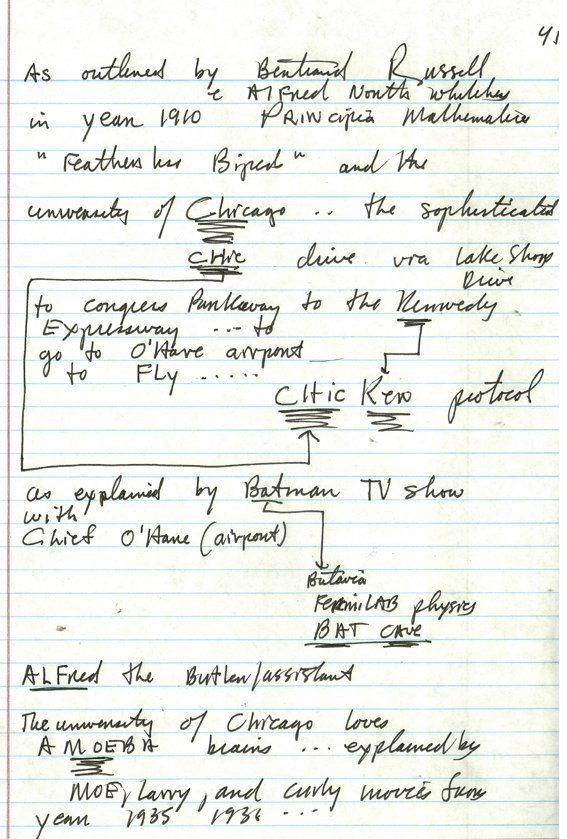 41
As outlined by Bertrand Russell
e Alfred North Whitehes
in year 1910 Principia Mathematica
"Featherless Biped" and the
university of Chicago .. the sophisticated
CHic drive via Lake Shore
Drive
to congress Parkway to the Kennedy
Expressway ... to
go to O'Hare airport
to FLy .....
CHic Ken protocol
as explained by Batman TV show
with
Chief O'Hare (airport)
Batavia
FermiLAB physics
BAT CAVE
ALFred the Butler/assistant
The university of Chicago loves
AMOEBA brains ... explained by
MOE, Larry, and Curly movies from
year 1935 1936 ...